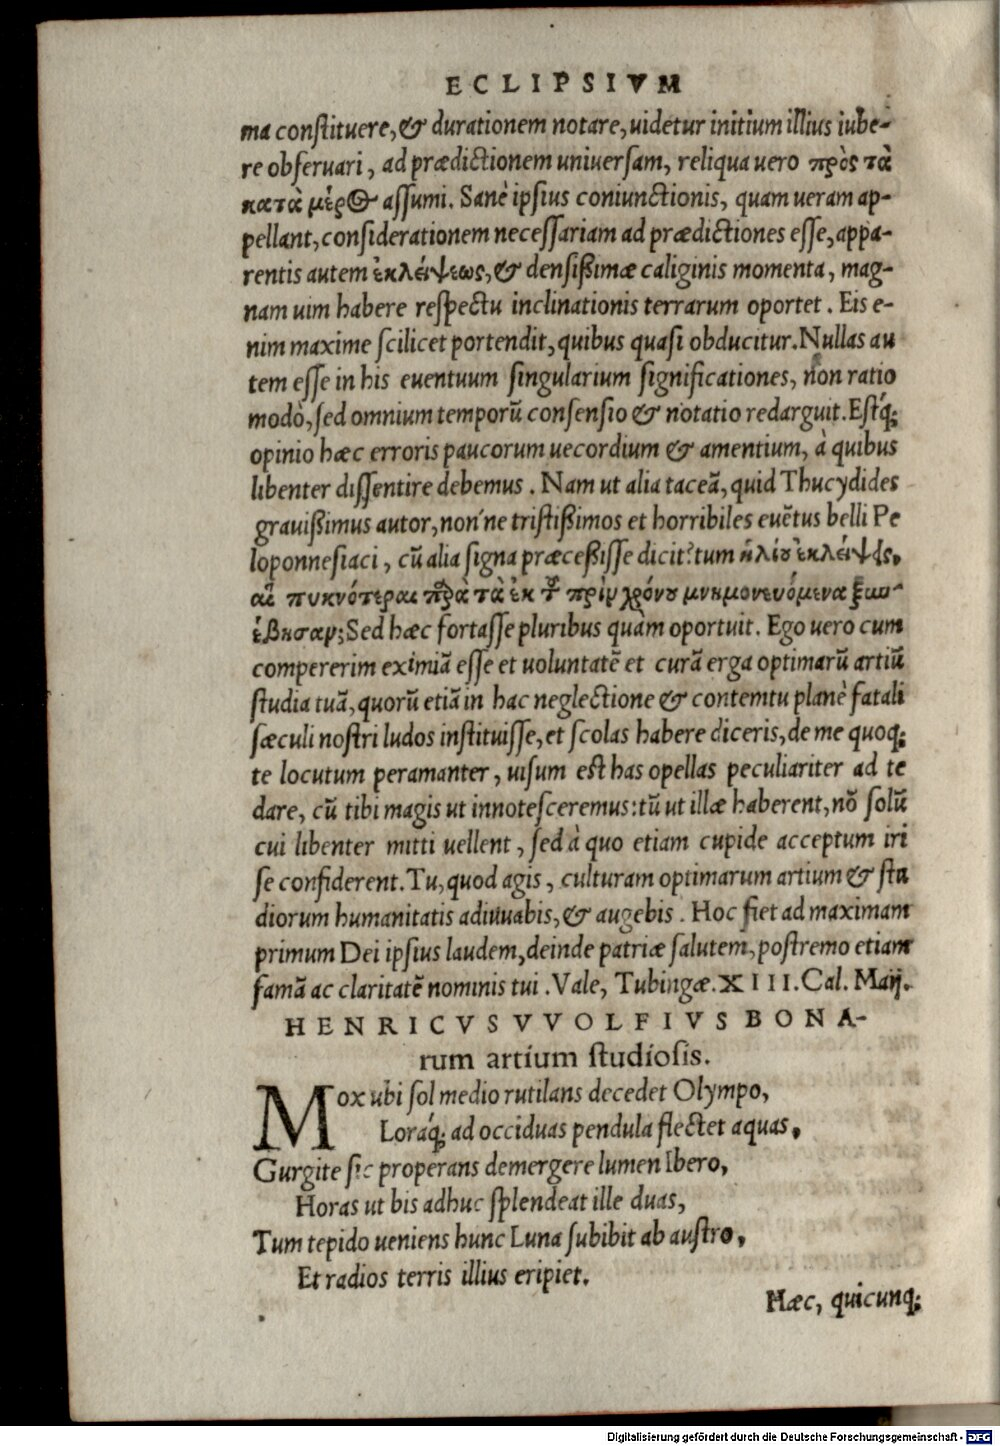 ECLIPSIVM
ma conſtituere, & durationem notare, uidetur initium illius iube-
re obſeruari, ad prædictionem uniuerſam, reliqua uero πρὸς τὰ
κατὰ μέρος aſſumi. Sanè ipſius coniunctionis, quam ueram ap-
pellant, conſiderationem neceſſariam ad prædictiones eſſe, appa-
rentis autem ἐκλείψεως, & denſißimæ caliginis momenta, mag-
nam uim habere reſpectu inclinationis terrarum oportet. Eis e-
nim maxime ſcilicet portendit, quibus quaſi obducitur. Nullas au
tem eſſe in his euentuum ſingularium ſignificationes, non ratio
modò, ſed omnium temporū conſenſio & notatio redarguit. Eſtq́;
opinio hæc erroris paucorum uecordium & amentium, à quibus
libenter diſſentire debemus. Nam ut alia taceā, quid Thucydides
grauißimus autor, non'ne triſtißimos et horribiles euētus belli Pe
loponneſiaci, cū alia ſigna præceßiſſe dicit? tum ἡλίου ἐκλείψεις,
αἳ πυκνότεραι παρὰ τὰ ἐκ τοῦ πρὶν χρόνου μνημονευόμενα ξυν-
έβησαν; Sed hæc fortaſſe pluribus quàm oportuit. Ego uero cum
compererim eximiā eſſe et uoluntatē et curā erga optimarū artiū
ſtudia tuā, quorū etiā in hac neglectione & contemtu planè fatali
ſæculi noſtri ludos inſtituiſſe, et ſcolas habere diceris, de me quoq;
te locutum peramanter, uiſum eſt has opellas peculiariter ad te
dare, cū tibi magis ut innoteſceremus: tū ut illæ haberent, nō ſolū
cui libenter mitti uellent, ſed à quo etiam cupide acceptum iri
ſe confiderent. Tu, quod agis, culturam optimarum artium & ſtu
diorum humanitatis adiuuabis, & augebis. Hoc fiet ad maximam
primum Dei ipſius laudem, deinde patriæ ſalutem, poſtremo etiam
famā ac claritatē nominis tui. Vale, Tubingæ. XIII. Cal. Maij.
HENRICVS VVOLFIVS BONA-
rum artium ſtudioſis.
Mox ubi ſol medio rutilans decedet Olympo,
Loraq́; ad occiduas pendula flectet aquas,
Gurgite ſic properans demergere lumen Ibero,
Horas ut bis adhuc ſplendeat ille duas,
Tum tepido ueniens hunc Luna ſubibit ab auſtro,
Et radios terris illius eripiet.
Hæc, quicunq;
Digitalisierung gefördert durch die Deutsche Forschungsgemeinschaft - DFG